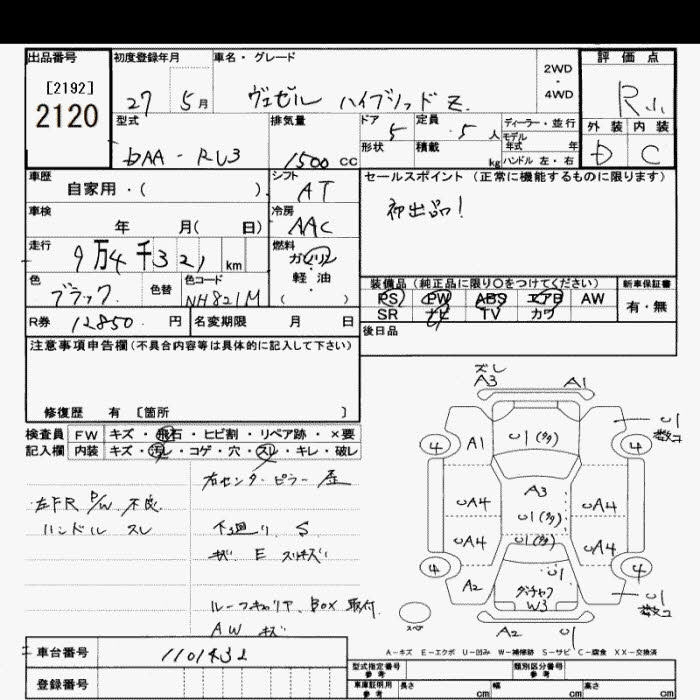 出品番号 初度登録年月 車名・グレード 評価点
[2192]
2120
27 5月 ヴェゼル ハイブリッド Z.
2WD
・
4WD
R小
型式 排気量 ドア 定員 ディーラー・並行
DAA - RU3 1500 cc 5 5人 モデル年式 年
形状 積載 kg ハンドル 左・右
外装 内装
D C
車歴 シフト セールスポイント(正常に機能するものに限ります)
自家用・( ) AT 初出品!
車検 冷房
年 月( 日) AAC
走行 燃料
9万4千321 km ガソリン・軽油
( )
色 色替 色コード
ブラック NH821M
装備品(純正品に限り〇をつけてください) 新車保証書
PS PW ABS エアB AW 有・無
SR ナビ TV カワ
R券 12850 円 名変期限 月 日 後日品
注意事項申告欄(不具合内容等は具体的に記入して下さい)
修復歴 有 [箇所 ]
検査員 FW キズ・飛石・ヒビ割・リペア跡・×要
記入欄 内装 キズ・汚レ・コゲ・穴・スレ・キレ・破レ
右センターピラー 歪
左FR P/W 不良
ハンドル スレ
下廻り S
キズ E スリキズ
ルーフキャリア、BOX 取付
AW キズ
ズレ
A3 A1
U1
数ユ
4 A1 U1(多) 4
A3
UA4 U1(多) UA4
UA4 U1(多) UA4
4 A2 U1 4
ダチャク
W3
U1
数ユ
スペア
A2 U1
A-キズ E-エクボ U-凹み W-補修跡 S-サビ C-腐食 XX-交換済
車台番号 1101432
登録番号
型式指定番号 参考 類別区分番号 参考
車庫証明用 参考 長さ cm 幅 cm 高さ cm